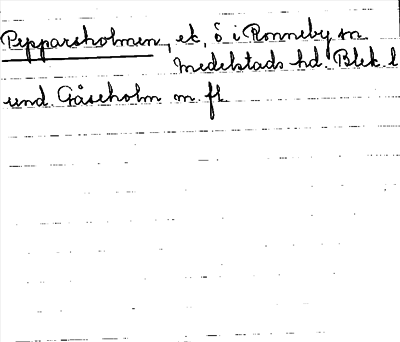 Pepparsholmen, ek, ö i Ronneby sn
Medelstads hd. Blek. l
und. Gåseholm m fl